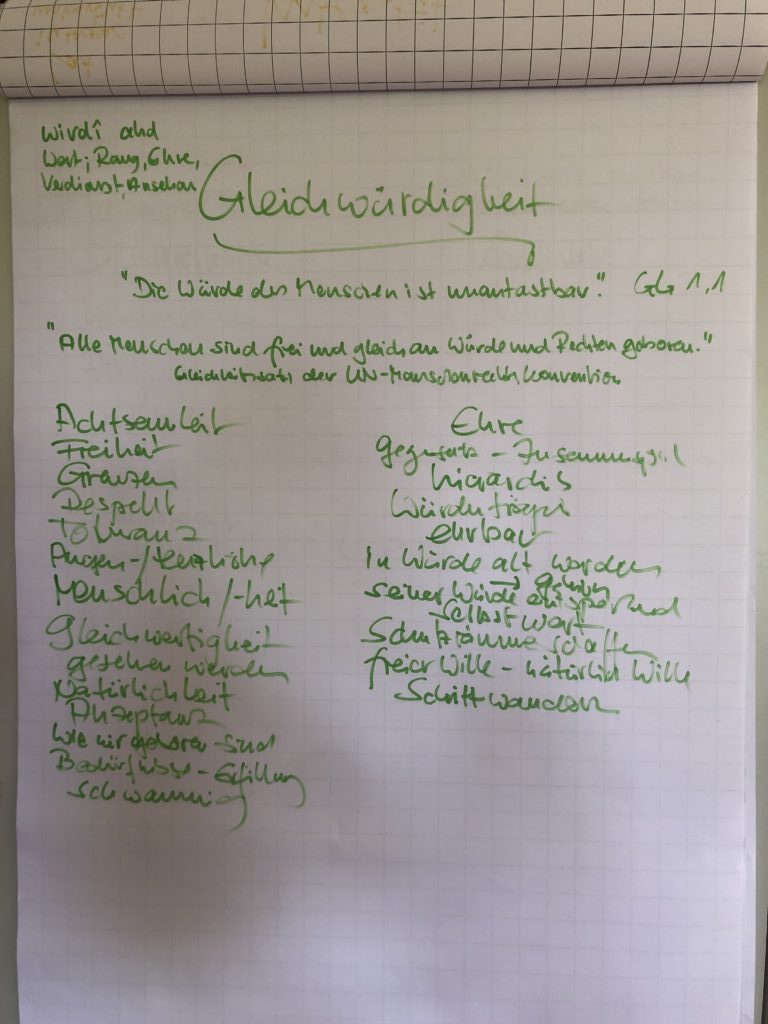 wirdî ahd
Wert; Rang, Ehre,
Verdienst, Ansehen
Gleichwürdigkeit
"Die Würde des Menschen ist unantastbar." GG 1,1
"Alle Menschen sind frei und gleich an Würde und Rechten geboren."
Gleichheitssatz der UN-Menschenrechtskonvention
Achtsamkeit
Freiheit
Grenzen
Respekt
Toleranz
Augen-/Herzhöhe
Menschlich/-heit
Gleichwertigkeit
gesehen werden
Natürlichkeit
Akzeptanz
wie wir geboren sind
Bedürfnisse - Erfüllung
schwammig
Ehre
Gegensatz -
Würdenträger
ehrbar
In Würde alt werden
→ gehen
seiner Würde entsprechend
Selbstwert
Schutzräume schaffen
freier Wille - natürlich Wille